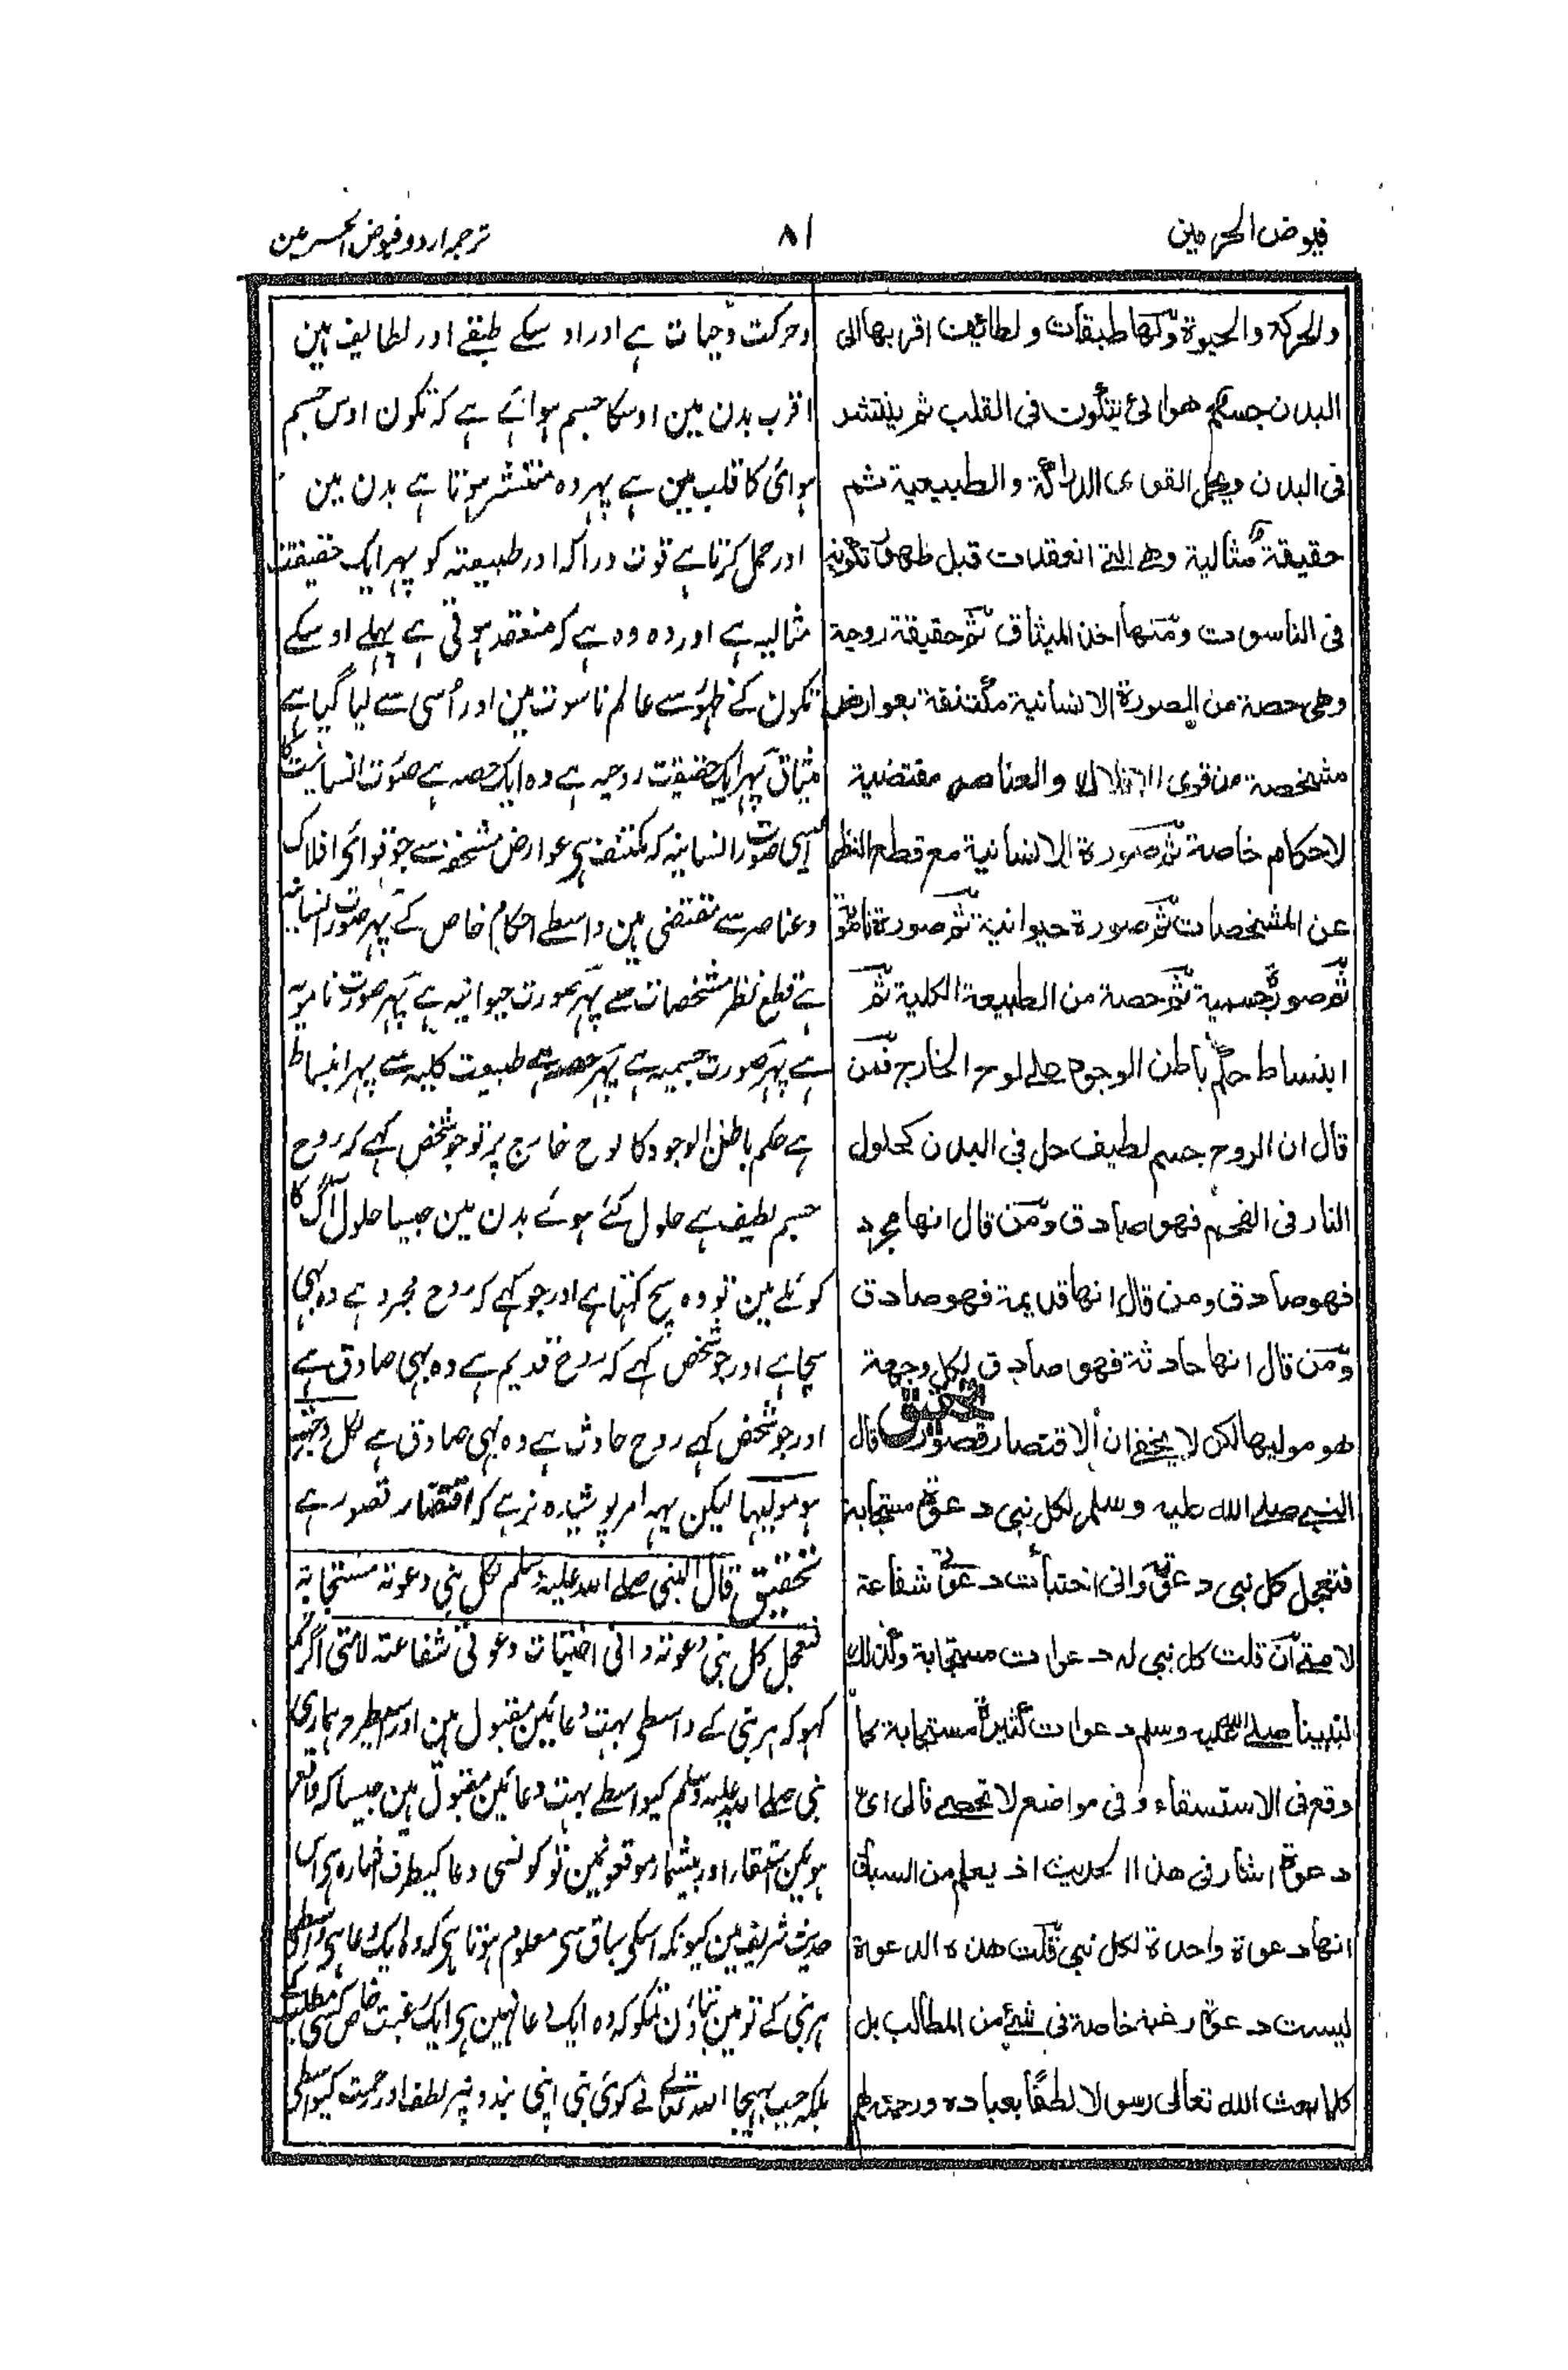 فيوض الحرمين
٨١
ترجمہ اردو فیوض الحرمین
والحركة والحيوة ولها طبقات ولطائف اقربها الى
البدن جسم هوائى يتكون فى القلب ثم ينتشر
فى البدن ويحمل القوى الدراكة والطبيعية ثم
حقيقة مثالية وهى التى انعقدت قبل ظهور تكونه
فى الناسوت ومنها اخذ الميثاق ثم حقيقة روحية
وهى حصة من الصورة الانسانية مكتنفة بعوارض
مشخصة من قوى الافلاك والعناصر مقتضية
لاحكام خاصة ثم صورة الانسانية مع قطع النظر
عن المشخصات ثم صورة حيوانية ثم صورة نامية
ثم صورة جسمية ثم حصة من الطبيعة الكلية ثم
انبساط حكم باطن الوجود على لوح الخارج فمن
قال ان الروح جسم لطيف حل فى البدن كحلول
النار فى الفحم فهو صادق ومن قال انها مجرد
فهو صادق ومن قال انها قديمة فهو صادق
ومن قال انها حادثة فهو صادق لكل وجهة
هو موليها لكن لا يخفى ان الاقتصار قصور التحقيق قال
النبى صلى الله عليه وسلم لكل نبى دعوة مستجابة
فتعجل كل نبى دعوته وانى اختبأت دعوتى شفاعة
لامتى ان قلت كل نبى له دعوات مستجابة وكذلك
لنبينا صلى الله عليه وسلم دعوات كثيرة مستجابة كما
وقع فى الاستسقاء وفى مواضع لا تحصى فالى اى
دعوة اشار فى هذا الحديث اذ يعلم من السياق
انها دعوة واحدة لكل نبى قلت هذه الدعوة
ليست دعوة رغبة خاصة فى شئ من المطالب بل
كلما بعث الله تعالى رسولا لطفا بعباده ورحمة لهم
وحرکت وحیات ہے اور اوسکے طبقے اور لطایف ہین
اقرب بدن مین اوسکا جسم ہوائے ہے کہ تکون اوس جسم
ہوائی کا قلب مین ہے پہر وہ منتشر ہوتا ہے بدن مین
اور حمل کرتا ہے قوت دراکہ اور طبیعتہ کو پہر ایک حقیقت
مثالیہ ہے اور وہ وہ ہے کہ منعقد ہوتی ہے پہلے اوسکے
تکون کے ظہور سے عالم ناسوت مین اور اُسی سے لیا گیا ہے
میثاق پہر ایک حقیقت روحیہ ہے وہ ایک حصہ ہے صورت انسانیت کا
ایسی صورت انسانیہ کہ مکتنف ہی عوارض مشخصہ سے جو قوائے افلاک
وعناصر سے مقتضی ہین واسطے احکام خاص کے پہر صورت انسانیہ
ہے قطع نظر مشخصات سے پہر صورت حیوانیہ ہے پہر صورت نامیہ
ہے پہر صورت جسمیہ ہے پہر حصہ ہے طبیعت کلیہ سے پہر انبساط
ہے حکم باطن الوجود کا لوح خارج پر تو جو شخص کہے کہ روح
جسم لطیف ہے حلول کئے ہوئے بدن مین جیسا حلول آگ کا
کوئلے مین تو وہ سچ کہتا ہے اور جو کہے کہ روح مجرد ہے وہ بہی
سچا ہے اور جو شخص کہے کہ روح قدیم ہے وہ بہی صادق ہے
اور جو شخص کہے روح حادث ہے وہ بہی صادق ہے لکل وجہۃ
ہو مولیہا لیکن یہہ امر پوشیدہ نرہے کہ اقتصار قصور ہے
تحقیق قال النبی صلے اللہ علیہ وسلم لکل نبی دعوتہ مستجابۃ
فتعجل کل نبی دعوتہ وانی اختبات دعوتی شفاعتہ لامتی اگر تم
کہو کہ ہر نبی کے واسطی بہت دعائین مقبول ہین اور اسیطرح ہماری
نبی صلے اللہ علیہ وسلم کیواسطے بہت دعائین مقبول ہین جیسا کہ واقع
ہوئین استسقاء اور بیشمار موقعونمین تو کونسی دعا کیطرف اشارہ ہی اس
حدیث شریف مین کیونکہ اسکی سیاق سی معلوم ہوتا ہی کہ وہ ایک دعا ہی واسطی
ہر نبی کے تو مین بتاؤن تمکو کہ وہ ایک دعا نہین ہی ایک رغبت خاص کسی مطلب کے
بلکہ جب بہیجا اللہ تعالے نے کوئی نبی اپنی بندونپر لطف اور رحمت کیواسطی